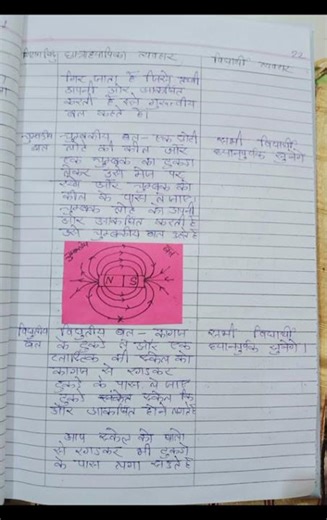 शिक्षणबिन्दु छात्राध्यापिका व्यवहार विद्यार्थी व्यवहार 22
गिर जाता है जिसे पृथ्वी
अपनी ओर आकर्षित
करती है इसे गुरुत्वीय
बल कहते है।
चुम्बकीय बल चुम्बकीय बल - एक छोटी सभी विद्यार्थी
लोहे की कील और ध्यानपूर्वक सुनेंगे
एक चुम्बक का टुकड़ा
लेकर उसे मेज पर
रखे और चुम्बक को
कील के पास ले जाए
चुम्बक लोहे को अपनी
ओर आकर्षित करती है
उसे चुम्बकीय बल कहते है
चुम्बकीय बल
N S
विद्युतीय बल विद्युतीय बल - कागज सभी विद्यार्थी
के टुकड़े ले और एक ध्यानपूर्वक सुनेंगे।
प्लास्टिक की स्केल को
कागज से रगड़कर
टुकड़े के पास ले जाए
टुकड़े स्केल कि
ओर आकर्षित होने लगते है
आप स्केल को बालो
से रगड़कर भी टुकड़ो
के पास लगा सकते है